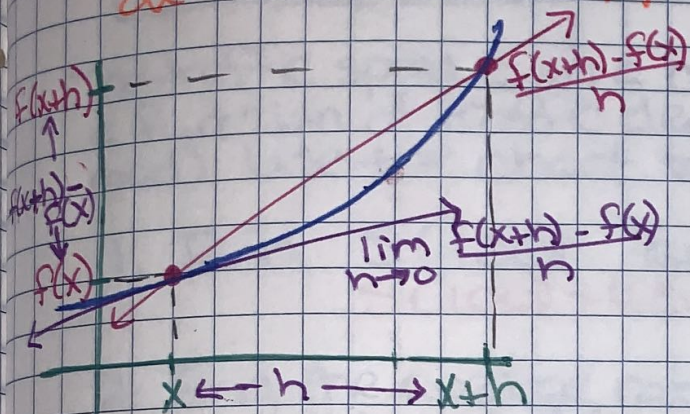 f(x+h)
f(x+h)-
f(x)
f(x)
f(x+h)-f(x)
h
lim
h→0
f(x+h)-f(x)
h
x ← h → x+h